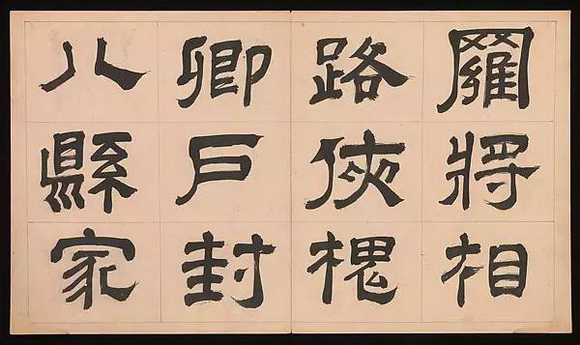 羅將相
路俠槐
卿戶封
八縣家